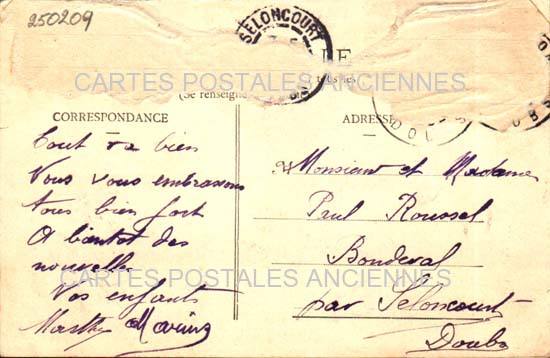 250209
SELONCOURT
CARTES POSTALES ANCIENNES
(Se renseigne
CORRESPONDANCE
Tout va bien
Nous vous embrassons
tous bien fort
A bientot des
nouvelles
Vos enfants
ADRESSE
M Monsieur et Madame
Paul Roussel
Bondeval
par Seloncourt
Doubs
CARTES POSTALES ANCIENNES